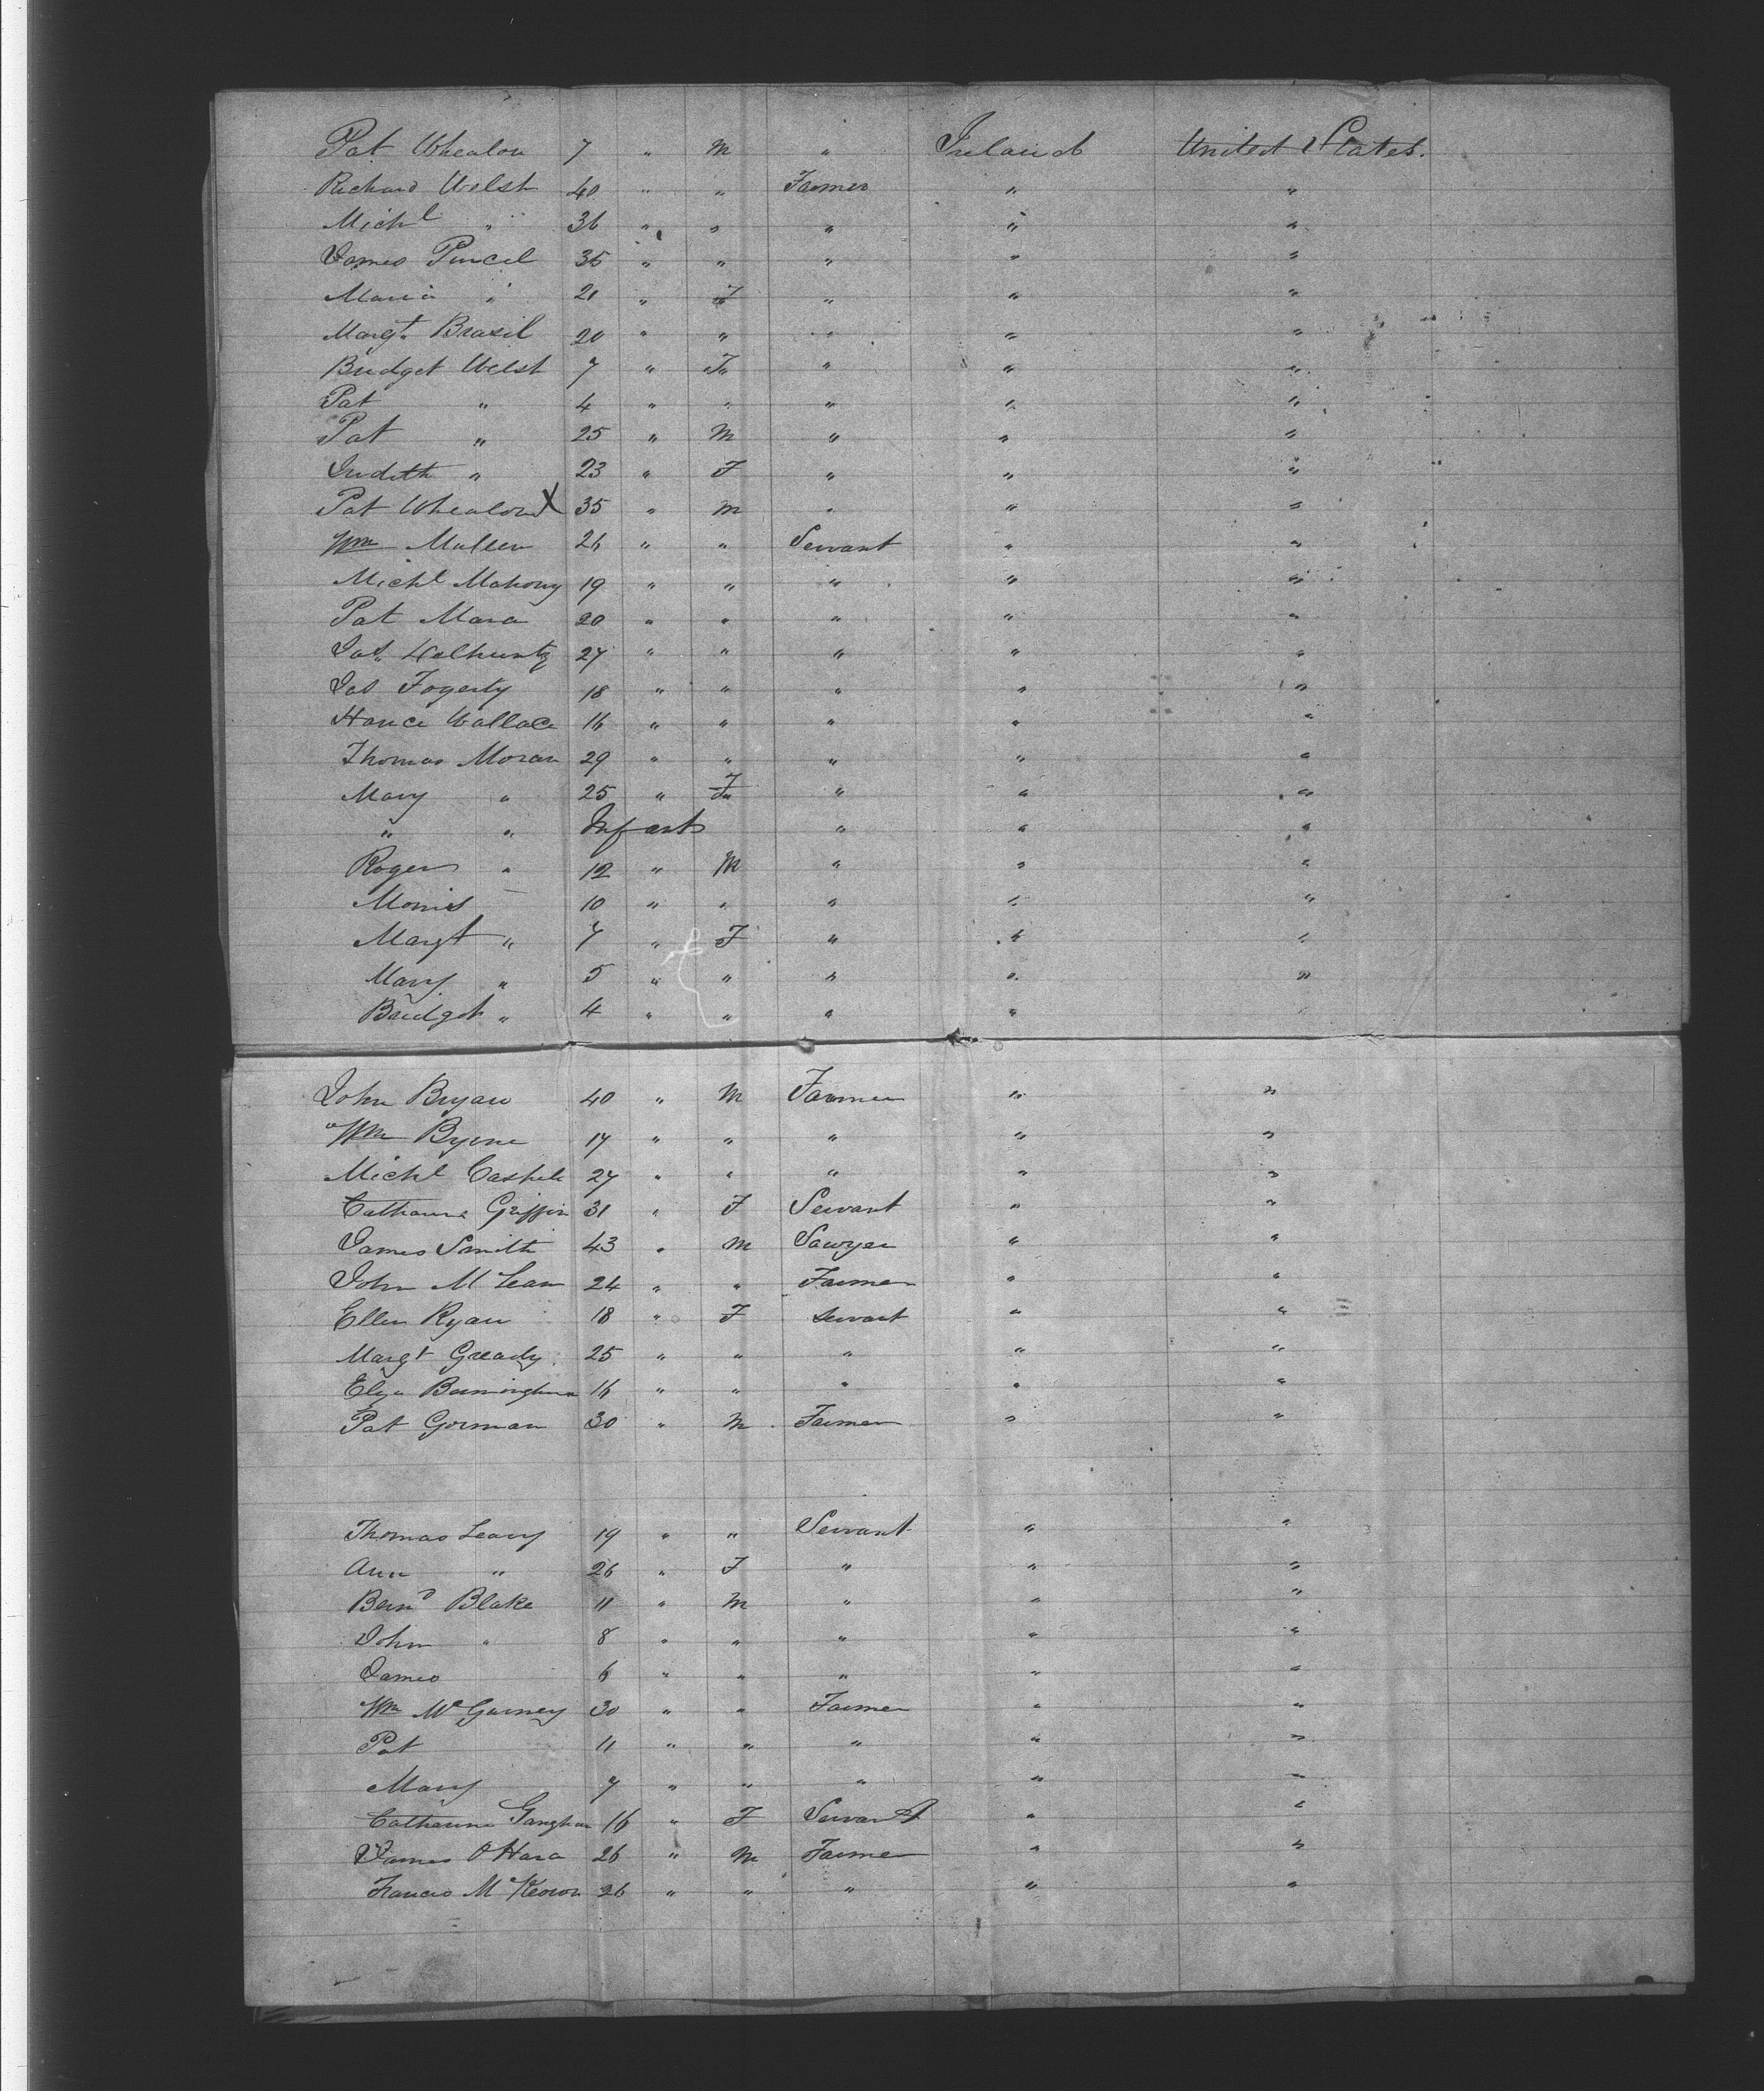 Pat Whealon 7 " M " Ireland United States.
Richard Welsh 40 " " Farmer " "
Michl " 36 " " " " "
James Purcel 35 " " " " "
Maria " 21 " F " " "
Margt Brasil 20 " " " " "
Bridget Welsh 7 " F " " "
Pat " 4 " " " " "
Pat " 25 " M " " "
Judith " 23 " F " " "
Pat Whealon X 35 " M " " "
Wm Mullen 26 " " Servant " "
Michl Mahony 19 " " " " "
Pat Mara 20 " " " " "
Jas. 27 " " " " "
Jas Fogerty 18 " " " " "
Hance Wallace 16 " " " " "
Thomas Moran 29 " " " " "
Mary " 25 " F " " "
" " Infant " " "
Roger " 12 " M " " "
Morris 10 " " " " "
Margt " 7 " F " " "
Mary " 5 " " " " "
Bridget " 4 " " " " "
John Bryan 40 " M Farmer " "
Wm Byrne 17 " " " " "
Michl 27 " " " " "
Catharine Griffin 31 " F Servant " "
James Smith 43 " M Sawyer " "
John McLean 24 " " Farmer " "
Ellen Ryan 18 " F Servant " "
Margt Gready 25 " " " " "
Eliza Bermingham 16 " " " " "
Pat Gorman 30 " M Farmer " "
Thomas Leary 19 " " Servant " "
Ann " 26 " F " " "
Bernd Blake 11 " M " " "
John " 8 " " " " "
James 6 " " " " "
Wm McGarney 30 " " Farmer " "
Pat 11 " " " " "
Mary 7 " " " " "
Catharine 16 " F Servant " "
James O'Hara 26 " M Farmer " "
Francis McKeown 26 " " " " "